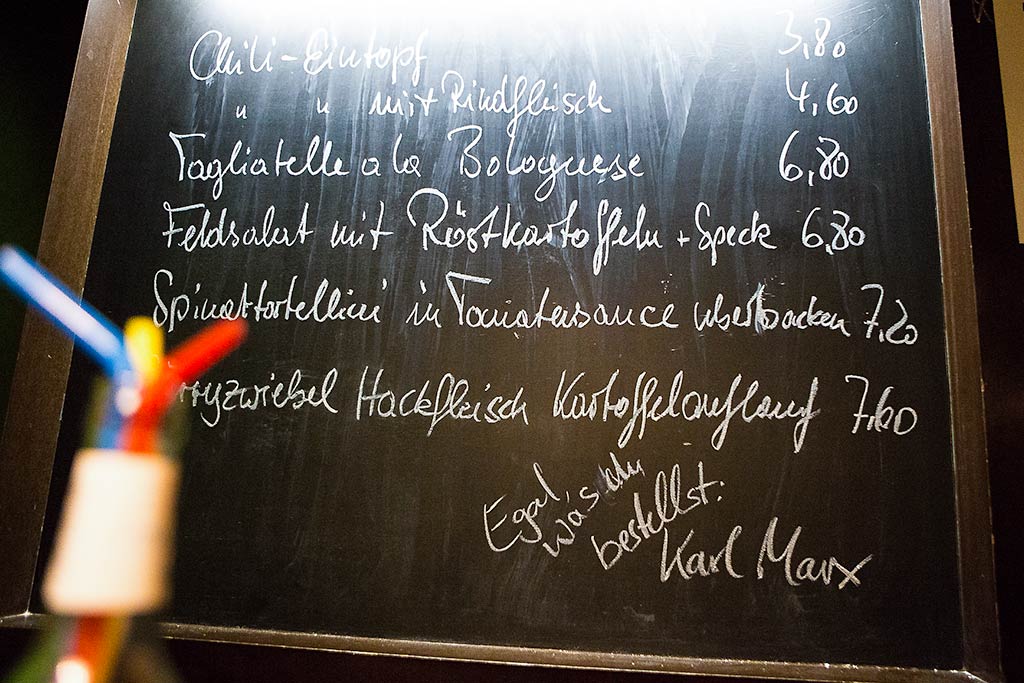 Chili-Eintopf 3,80
" " mit Rindfleisch 4,60
Tagliatelle a la Bolognese 6,80
Feldsalat mit Röstkartoffeln + Speck 6,80
Spinattortellini in Tomatensauce überbacken 7,20
rryzwiebel Hackfleisch Kartoffelauflauf 7,60
Egal,
was du
bestellst:
Karl Marx